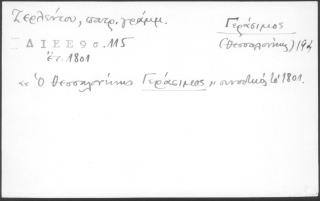 Ζερλέντου, πατρ. γράμμ.
Γεράσιμος
(Θεσσαλονίκης) 19
ΔΙΕΕ 9 σ. 115
ἔτ. 1801
« Ὁ Θεσσαλονίκης Γεράσιμος » συνοδικός 1801.